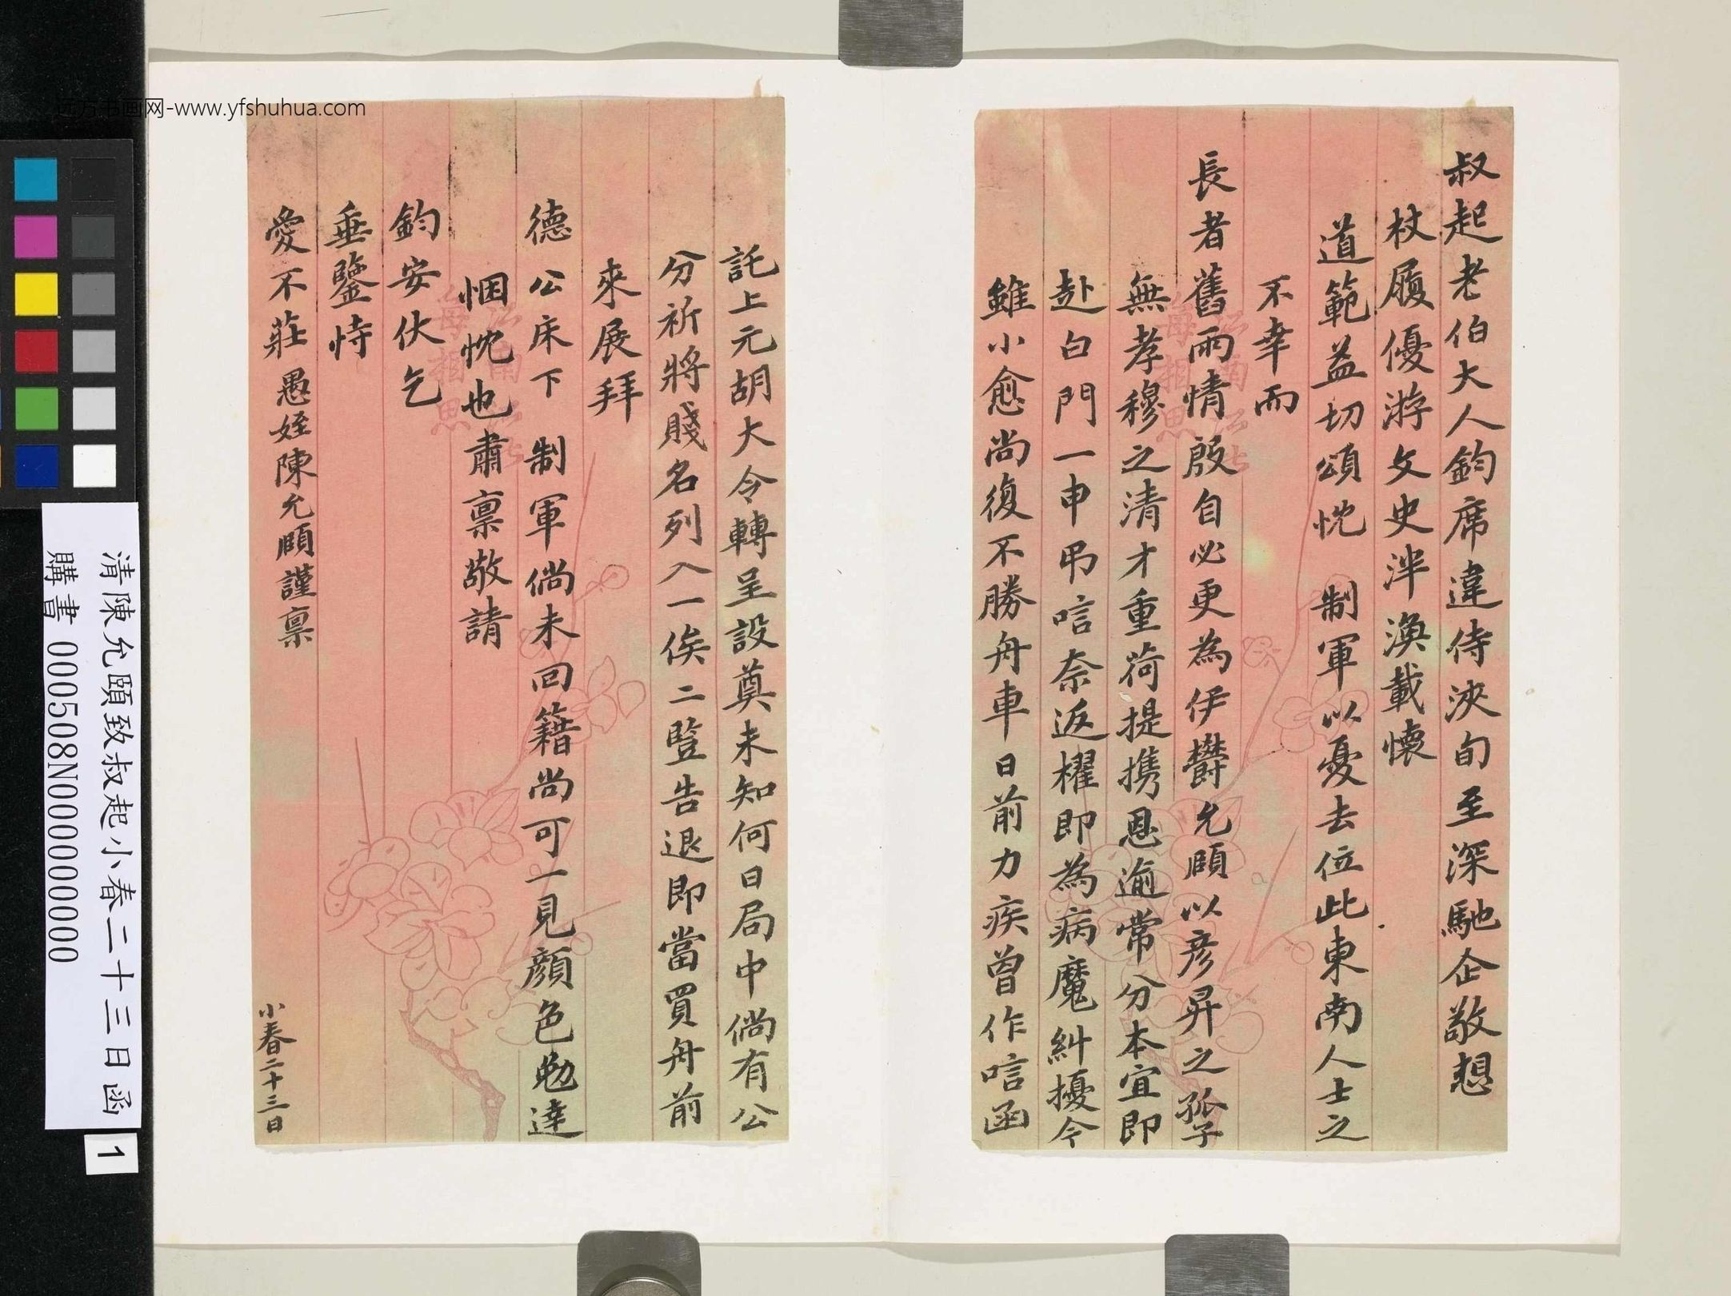 叔起老伯大人鈞席違侍浹旬至深馳企敬想
杖履優游文史泮渙載懷
道範益切頌忱 制軍以憂去位此東南人士之
不幸而
長者舊雨情殷自必更為伊鬱允頤以彥昇之孤子
無孝穆之清才重荷提攜恩逾常分本宜即
赴白門一申弔唁奈返櫂即為病魔糾擾今
雖小愈尚復不勝舟車日前力疾曾作唁函
託上元胡大令轉呈設奠未知何日局中倘有公
分祈將賤名列入一俟二豎告退即當買舟前
來展拜
德公床下 制軍倘未回籍尚可一見顏色勉達
悃忱也肅稟敬請
鈞安伏乞
垂鑒恃
愛不莊愚姪陳允頤謹稟
小春二十三日
清陳允頤致叔起小春二十三日函
購書 000508N000000000
1
远方书画网-www.yfshuhua.com